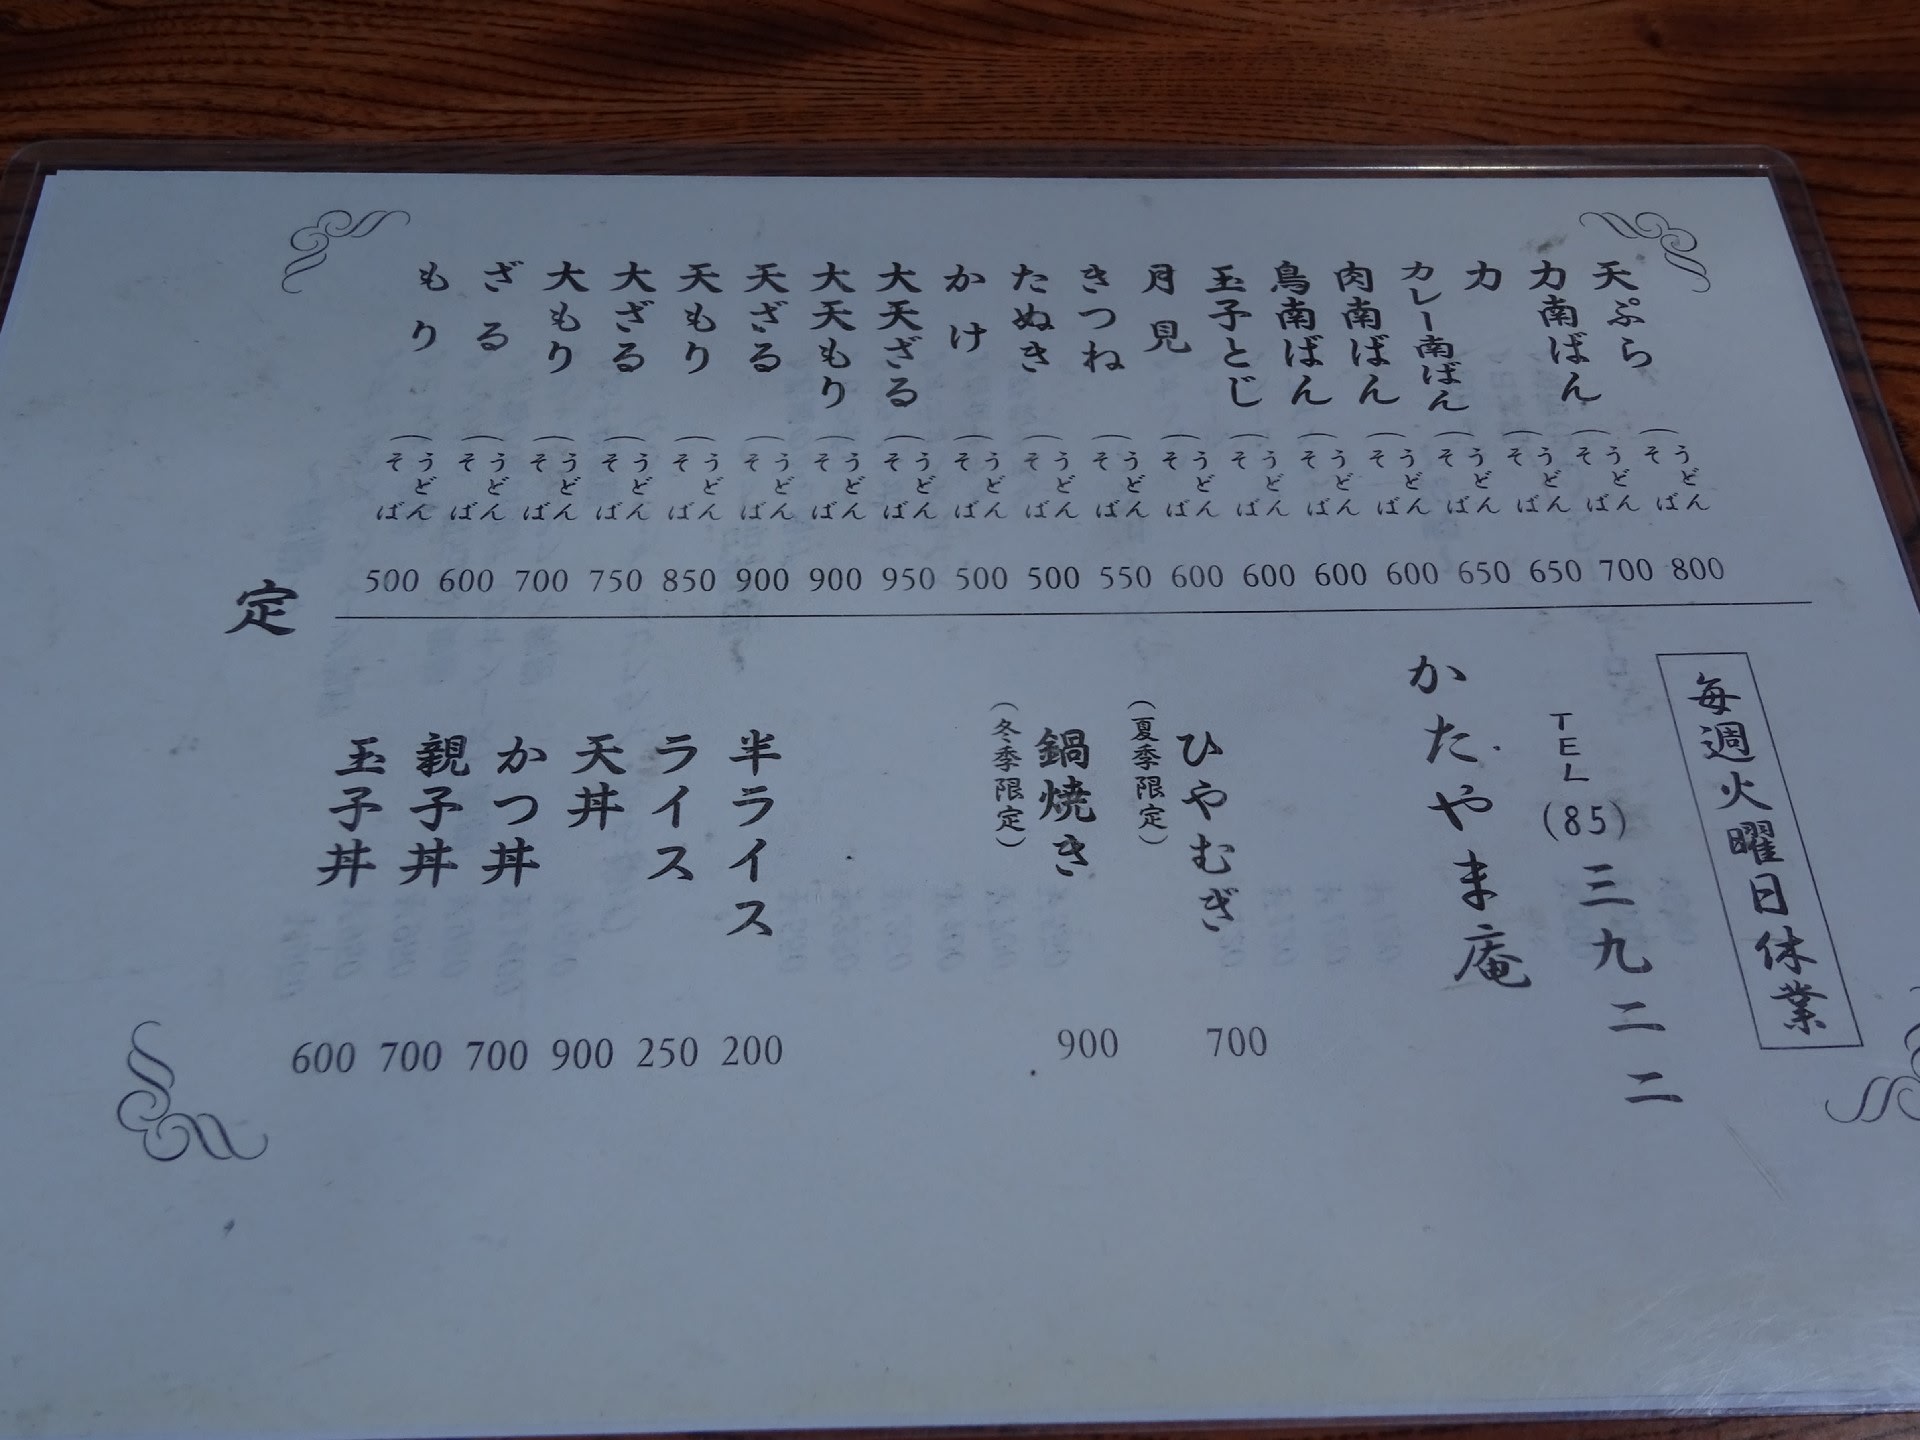 天ぷら（うどん そば 800
力南ばん（うどん そば 700
力（うどん そば 650
カレー南ばん（うどん そば 650
肉南ばん（うどん そば 600
鳥南ばん（うどん そば 600
玉子とじ（うどん そば 600
月見（うどん そば 600
きつね（うどん そば 550
たぬき（うどん そば 500
かけ（うどん そば 500
大天ざる（うどん そば 950
大天もり（うどん そば 900
天ざる（うどん そば 900
天もり（うどん そば 850
大ざる（うどん そば 750
大もり（うどん そば 700
ざる（うどん そば 600
もり（うどん そば 500
毎週火曜日休業
TEL(85)三九二二
かたやま庵
ひやむぎ 700
(夏季限定)
鍋焼き 900
(冬季限定)
半ライス 200
ライス 250
天丼 900
かつ丼 700
親子丼 700
玉子丼 600
定